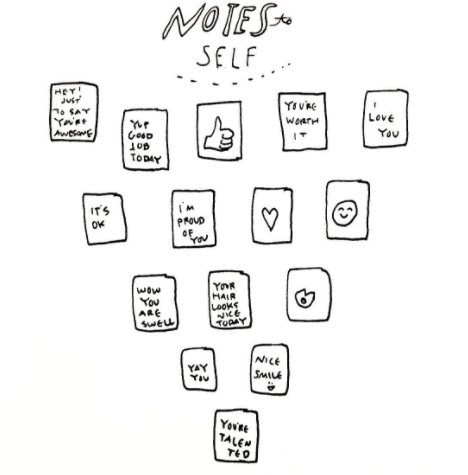 NOTES to
SELF
HEY!
JUST
TO SAY
YOU'RE
AWESOME
YUP
GOOD
JOB
TODAY
YOU'RE
WORTH
IT
I
LOVE
YOU
IT'S
OK
I'M
PROUD
OF
YOU
WOW
YOU
ARE
SWELL
YOUR
HAIR
LOOKS
NICE
TODAY
YAY
YOU
NICE
SMILE
YOU'RE
TALEN
TED